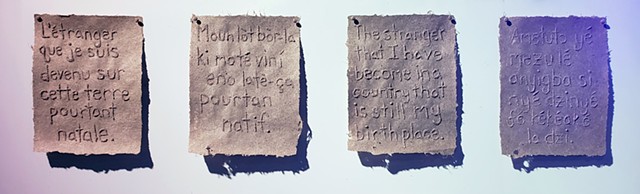 L'étranger
que je suis
devenu sur
cette terre
pourtant
natale.
Moun lòt bòr-la
ki moté vini
an latè-ça
pourtan
natif.
The stranger
that I have
become in a
country that
is still my
birthplace.
mezu lé
anyigba si
nye dzinyé
la dzi.